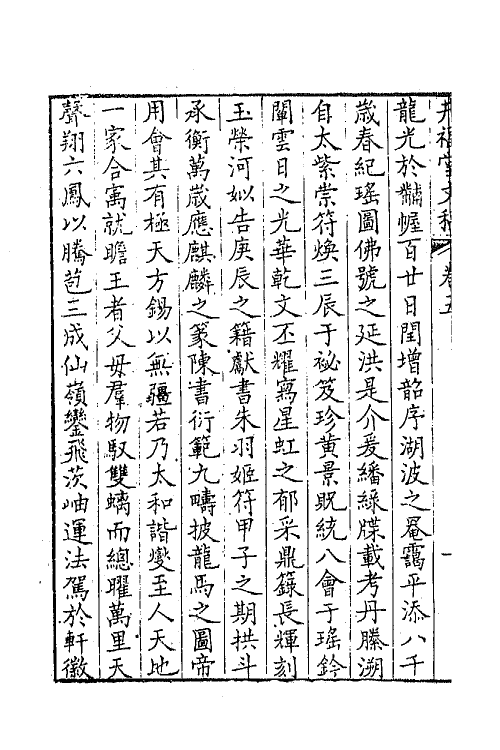 井福堂文稿 卷五 一
龍光於黼幄百廿日閏增韶序湖波之罨靄平添八千
歲春紀瑤圖佛號之延洪是介爰繙綠牒載考丹縢溯
自太紫棠符煥三辰于祕笈珍黃景貺統八會于瑤鈐
闡雲日之光華乾文丕耀寫星虹之郁采鼎籙長輝刻
玉榮河姒告庚辰之籍獻書朱羽姬符甲子之期拱斗
承衡萬歲應麒麟之篆陳書衍範九疇披龍馬之圖帝
用會其有極天方錫以無疆若乃太和諧燮至人天地
一家合㝢就瞻王者父母羣物馭雙螭而總曜萬里天
聲翔六鳳以騰苞三成仙嶺鑾飛茨岫運法駕於軒徽